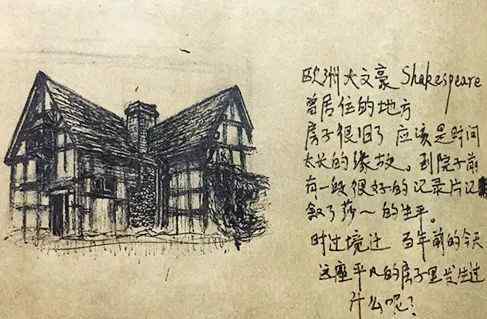 欧洲大文豪 Shakespeare
曾居住的地方
房子很旧了 应该是时间
太长的缘故。到院子前
有一段很好的记录片记
叙了莎~的生平。
时过境迁 当年前的今天
这座平凡的房子里发生过
什么呢？